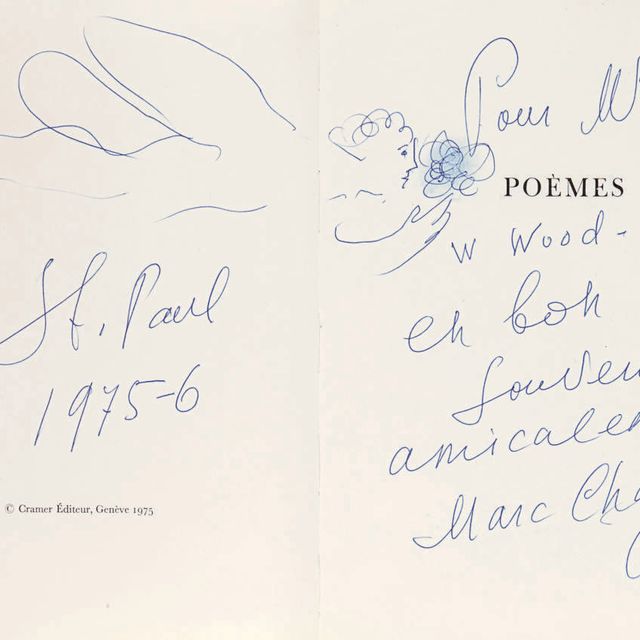 St. Paul
1975-6
© Cramer Éditeur, Genève 1975
Pour M
POÈMES
W Wood-
en bon
Souven
amicalem
Marc Cha